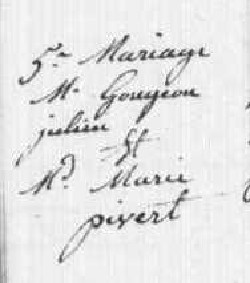 5.e Mariage
Mr Gougeon
julien
Et
Md Marie
pivert